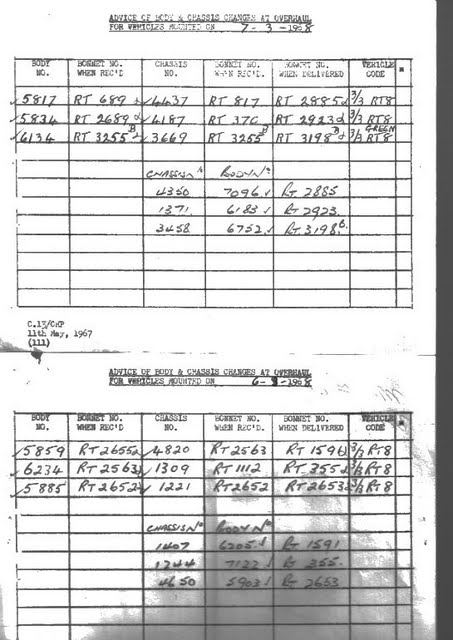 ADVICE OF BODY & CHASSIS CHANGES AT OVERHAUL
FOR VEHICLES MOUNTED ON 7-3-1968
BODY NO. BONNET NO. WHEN REC'D CHASSIS NO. BONNET NO. WHEN REC'D. BONNET NO. WHEN DELIVERED VEHICLE CODE
5817 RT 689 4437 RT 817 RT 2885 3/3 RT8
5834 RT 2689 4187 RT 370 RT 2923 3/3 RT8
6134 RT 3255 B 3669 RT 3255 B RT 3198 B 3/3 RT8 GREEN
CHASSIS No BODY No
4350 7096 RT 2885
1371 6183 RT 2923
3458 6752 RT 3198 B.
C.13/CHP
11th May, 1967
(111)
ADVICE OF BODY & CHASSIS CHANGES AT OVERHAUL
FOR VEHICLES MOUNTED ON 6-3-1968
BODY NO. BONNET NO. WHEN REC'D CHASSIS NO. BONNET NO. WHEN REC'D. BONNET NO. WHEN DELIVERED VEHICLE CODE
5859 RT 2655 4820 RT 2563 RT 1591 3/3 RT8
6234 RT 2563 1309 RT 1112 RT 355 3/3 RT8
5885 RT 2652 1221 RT 2652 RT 2653 3/3 RT8
CHASSIS No BODY No
1407 6205 RT 1591
1244 7122 RT 355
4650 5903 RT 2653